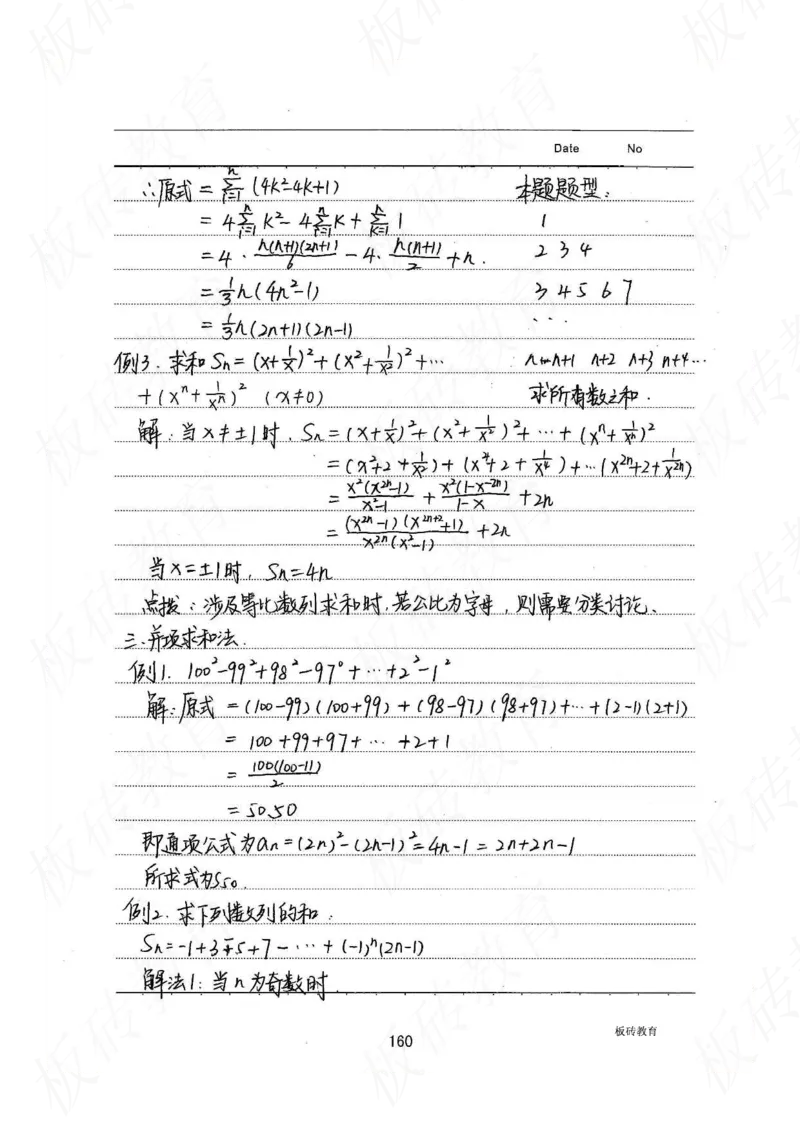 Date No
∴原式 = Σ_{i=1}^{n} (4k²-4k+1) 本题题型:
= 4Σ_{i=1}^{n} k² - 4Σ_{i=1}^{n} k + Σ_{k=1}^{n} 1 1
= 4 · n(n+1)(2n+1)/6 - 4 · n(n+1)/2 + n. 2 3 4
= 1/3 n(4n²-1) 3 4 5 6 7
= 1/3 n(2n+1)(2n-1) ...
例3. 求和 Sn = (x+1/x)² + (x²+1/x²)² + ··· n n+1 n+2 n+3 n+4···
+ (xⁿ + 1/xⁿ)² (x≠0) 求所有数之和.
解: 当x≠±1时, Sn = (x+1/x)² + (x²+1/x²)² + ··· + (xⁿ+1/xⁿ)²
= (x²+2+1/x²) + (x⁴+2+1/x⁴) + ···(x²ⁿ+2+1/x²ⁿ)
= x²(x²ⁿ-1)/(x²-1) + x²(1-x⁻²ⁿ)/(1-x) + 2n
= (x²ⁿ-1)(x²ⁿ⁺²+1)/(x²ⁿ(x²-1)) + 2n
当x=±1时, Sn=4n
点拨: 涉及等比数列求和时,若公比为字母, 则需要分类讨论.
三.并项求和法.
例1. 100²-99²+98²-97²+···+2²-1²
解: 原式 = (100-99)(100+99) + (98-97)(98+97)+···+(2-1)(2+1)
= 100+99+97+ ··· +2+1
= 100(100-11)/2
= 5050
即通项公式为an=(2n)²-(2n-1)²=4n-1=2n+2n-1
所求式为S50.
例2. 求下列数列的和:
Sn=-1+3-5+7-···+(-1)ⁿ(2n-1)
解法1: 当n为奇数时.
160
板砖教育